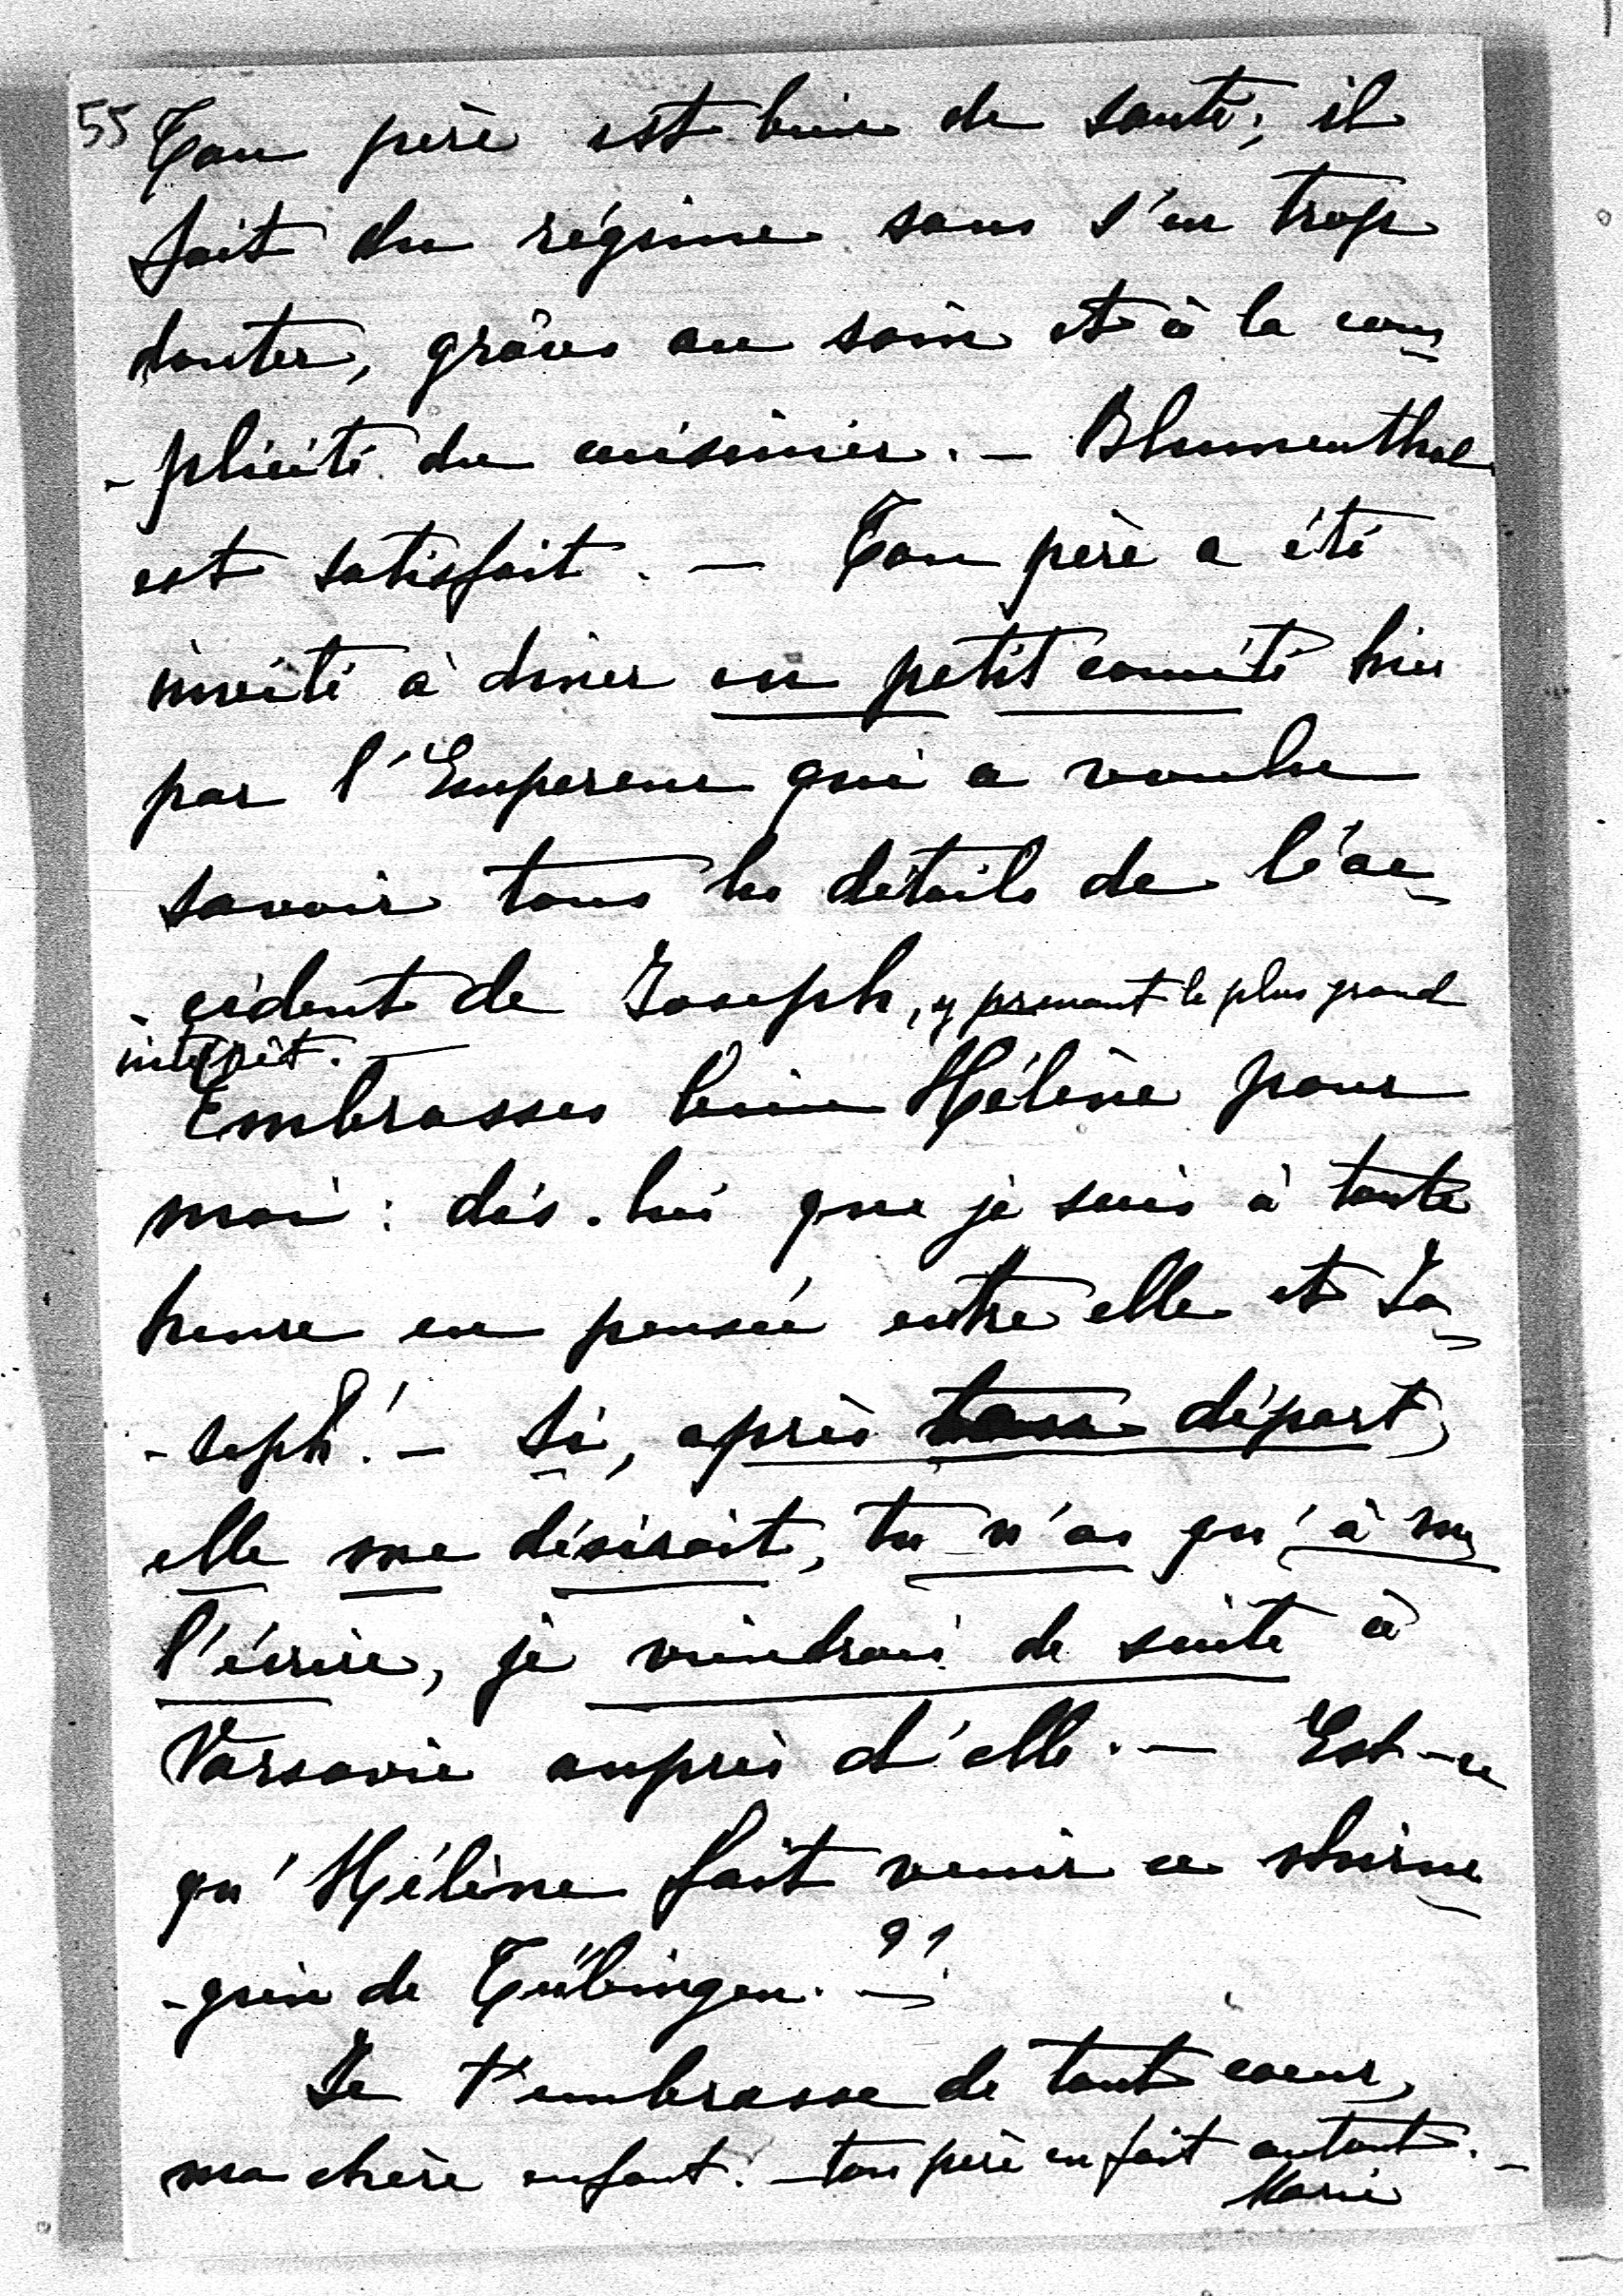 55 Ton père est bien de santé; il
fait du régime sans s'en trop
douter, grâces au soin et à la com-
-plicité du cuisinier. — Blumenthal
est satisfait. — Ton père a été
invité à diner en petit comité hier
par l'Empereur qui a voulu
savoir tous les détails de l'ac-
-cident de Joseph, y prenant le plus grand
intérêt. —
Embrasses bien Hélène pour
moi: dis-lui que je suis à toute
heure en pensée entre elle et Jo-
-seph! — Si, après ton départ,
elle me désirait, tu n'as qu'à me
l'écrire, je viendrai de suite à
Varsovie auprès d'elle. — Est-ce
qu'Hélène fait venir ce chirur-
-gien de Tübingen. —?
Je t'embrasse de tout coeur,
ma chère enfant. — ton père en fait autant. —
Marie